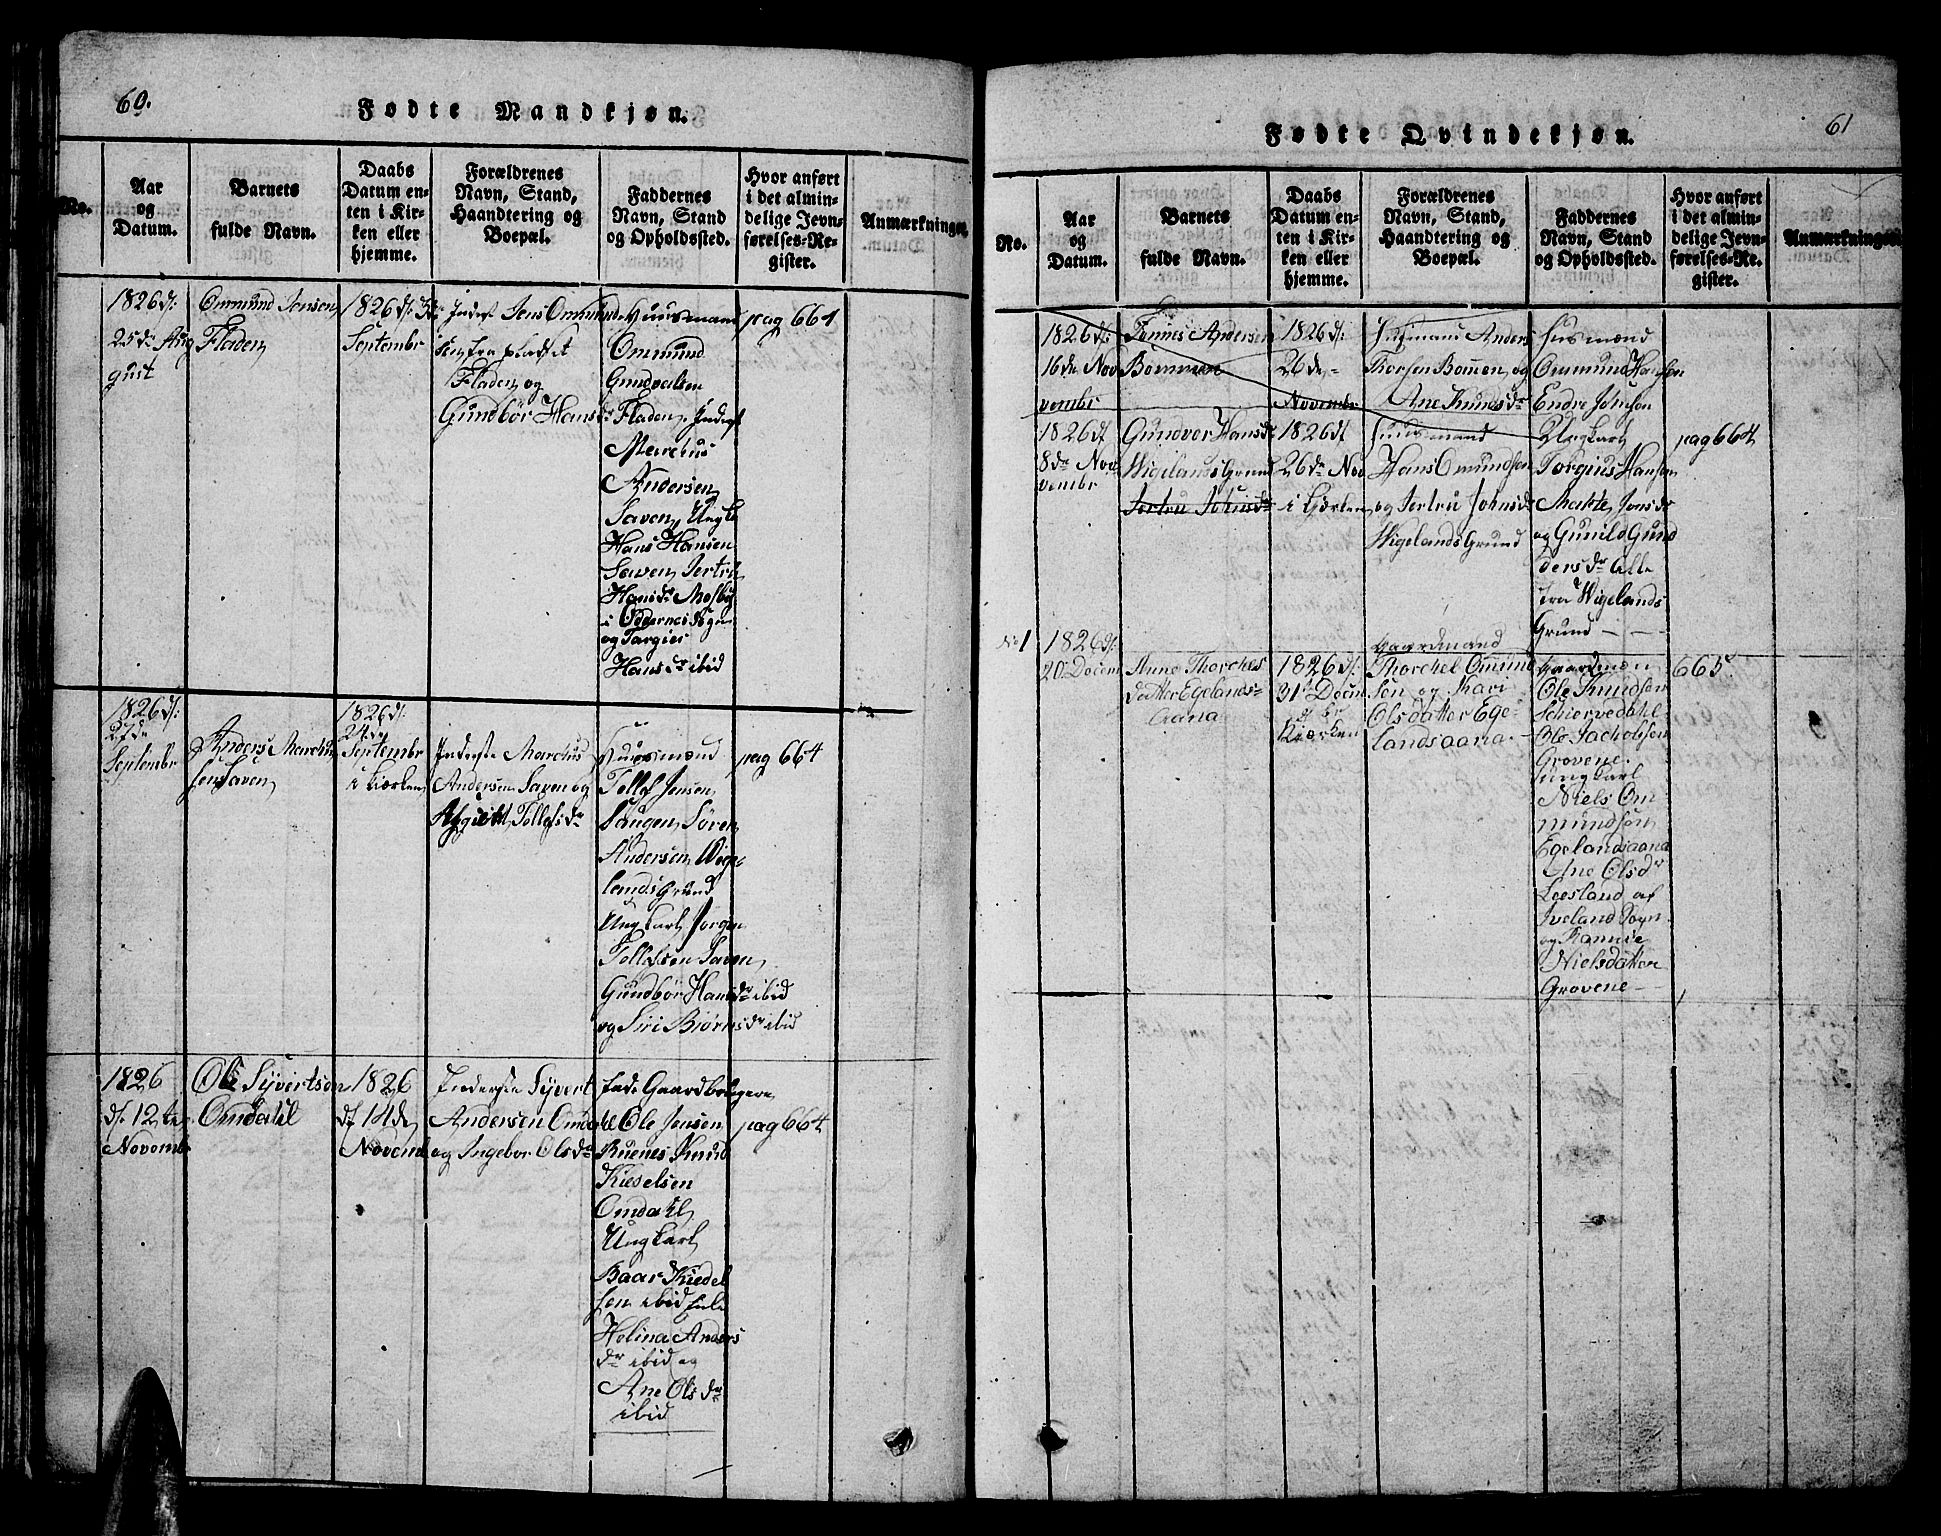 60.
Fødte Mandkjøn.
No.
Aar
og
Datum.
Barnets
fulde Navn.
Daabs
Datum en-
ten i Kir-
ken eller
hjemme.
Forældrenes
Navn, Stand,
Haandtering og
Boepæl.
Faddernes
Navn, Stand
og Opholdssted.
Hvor anført
i det almin-
delige Jevn-
førelses-Re-
gister.
Anmærkninger.
1826 d:
25de Aug
gust
Ommund Jensen
Fladen
1826 d:
Septembr
Jens Ommund
sen fra pladset
Fladen og
Gundbør Hansdr
Huusmand
Ommund
Gundvalsen
Fladen, Inderst
Marchus
Andersen
Saven, Ungk
Hans Hansen
Saven Jertru
Hansdr Mosby
i Oddernes Sogn
og Targier
Hansdr ibid
pag 664
1826 d:
27de
Septembr
Anders Marchus
sen Saven
1826 d:
24de
Septembr
i Kiærken
Inderste Marchus
Andersen Saven og
Tollefsdr
Huusmænd
Tollef Jensen
Haugen Sören
Andersen Wige
landsGrund
Ungkarl Jorgen
Tollefsen Saven
Gundbör Hansdr ibid
og Siri Biörnsdr ibid
pag 664
1826
d: 12te
Novembr
Ole Syvertsen
Omdahl
1826
d: 14de
Novemb
Inderste Syvert
Andersen Omdahl
og Ingebor Olsdr
Gaardbrugere
Ole Jensen
Buenes Knud
Kieselsen
Omdahl
Ungkarl
Baar Kiedel
sen ibid
Helina Anders
dr ibid og
Ane Olsdr
ibid
pag 664
61
Fødte Qvindekjøn.
No.
Aar
og
Datum.
Barnets
fulde Navn.
Daabs
Datum en-
ten i Kir-
ken eller
hjemme.
Forældrenes
Navn, Stand,
Haandtering og
Boepæl.
Faddernes
Navn, Stand
og Opholdssted.
Hvor anført
i det almin-
delige Jevn-
førelses-Re-
gister.
Anmærkninger.
1826 d:
16de Nov
vembr
Tønnes Andersen
Bommen
1826 d:
26de
Novembr
Husmand Anders
Thorsen Bommen og
Ane Knudsdr
Husmænd
Ommund Hansen
Endre Johnsen
1826 d:
8de Nov
vembr
Gundvor Hansdr
WigelandsGrund
Jertru Johnsdr
1826 d:
26de Nov
i Kiærken
Huusmand
Hans Omundsen
og Jertru Johnsdr
WigelandsGrund
Ungkarl
Torgius Hansen
Malte Jonsdr
og Gunild Gund
dersdr alle
fra Wigelands
Grund
pag 664
No 1
1826 d:
20 Decem
Anne Thorchels
datter Egelands-
aana
1826 d:
31 Decem
Kiærken
Gaardmand
Thorchel Omund
sen og Mari
Olsdatter Ege-
landsaana
Gaardmæn
Ole Knudsen
Schiervedahl
Ole Jacholsen
Grovene
ungkarl
Niels Om
mundsen
Egelandsaana
Ane Olsdr
Leesland af
Iveland Sogn
og Rannie
Nielsdatter
Grovene
665